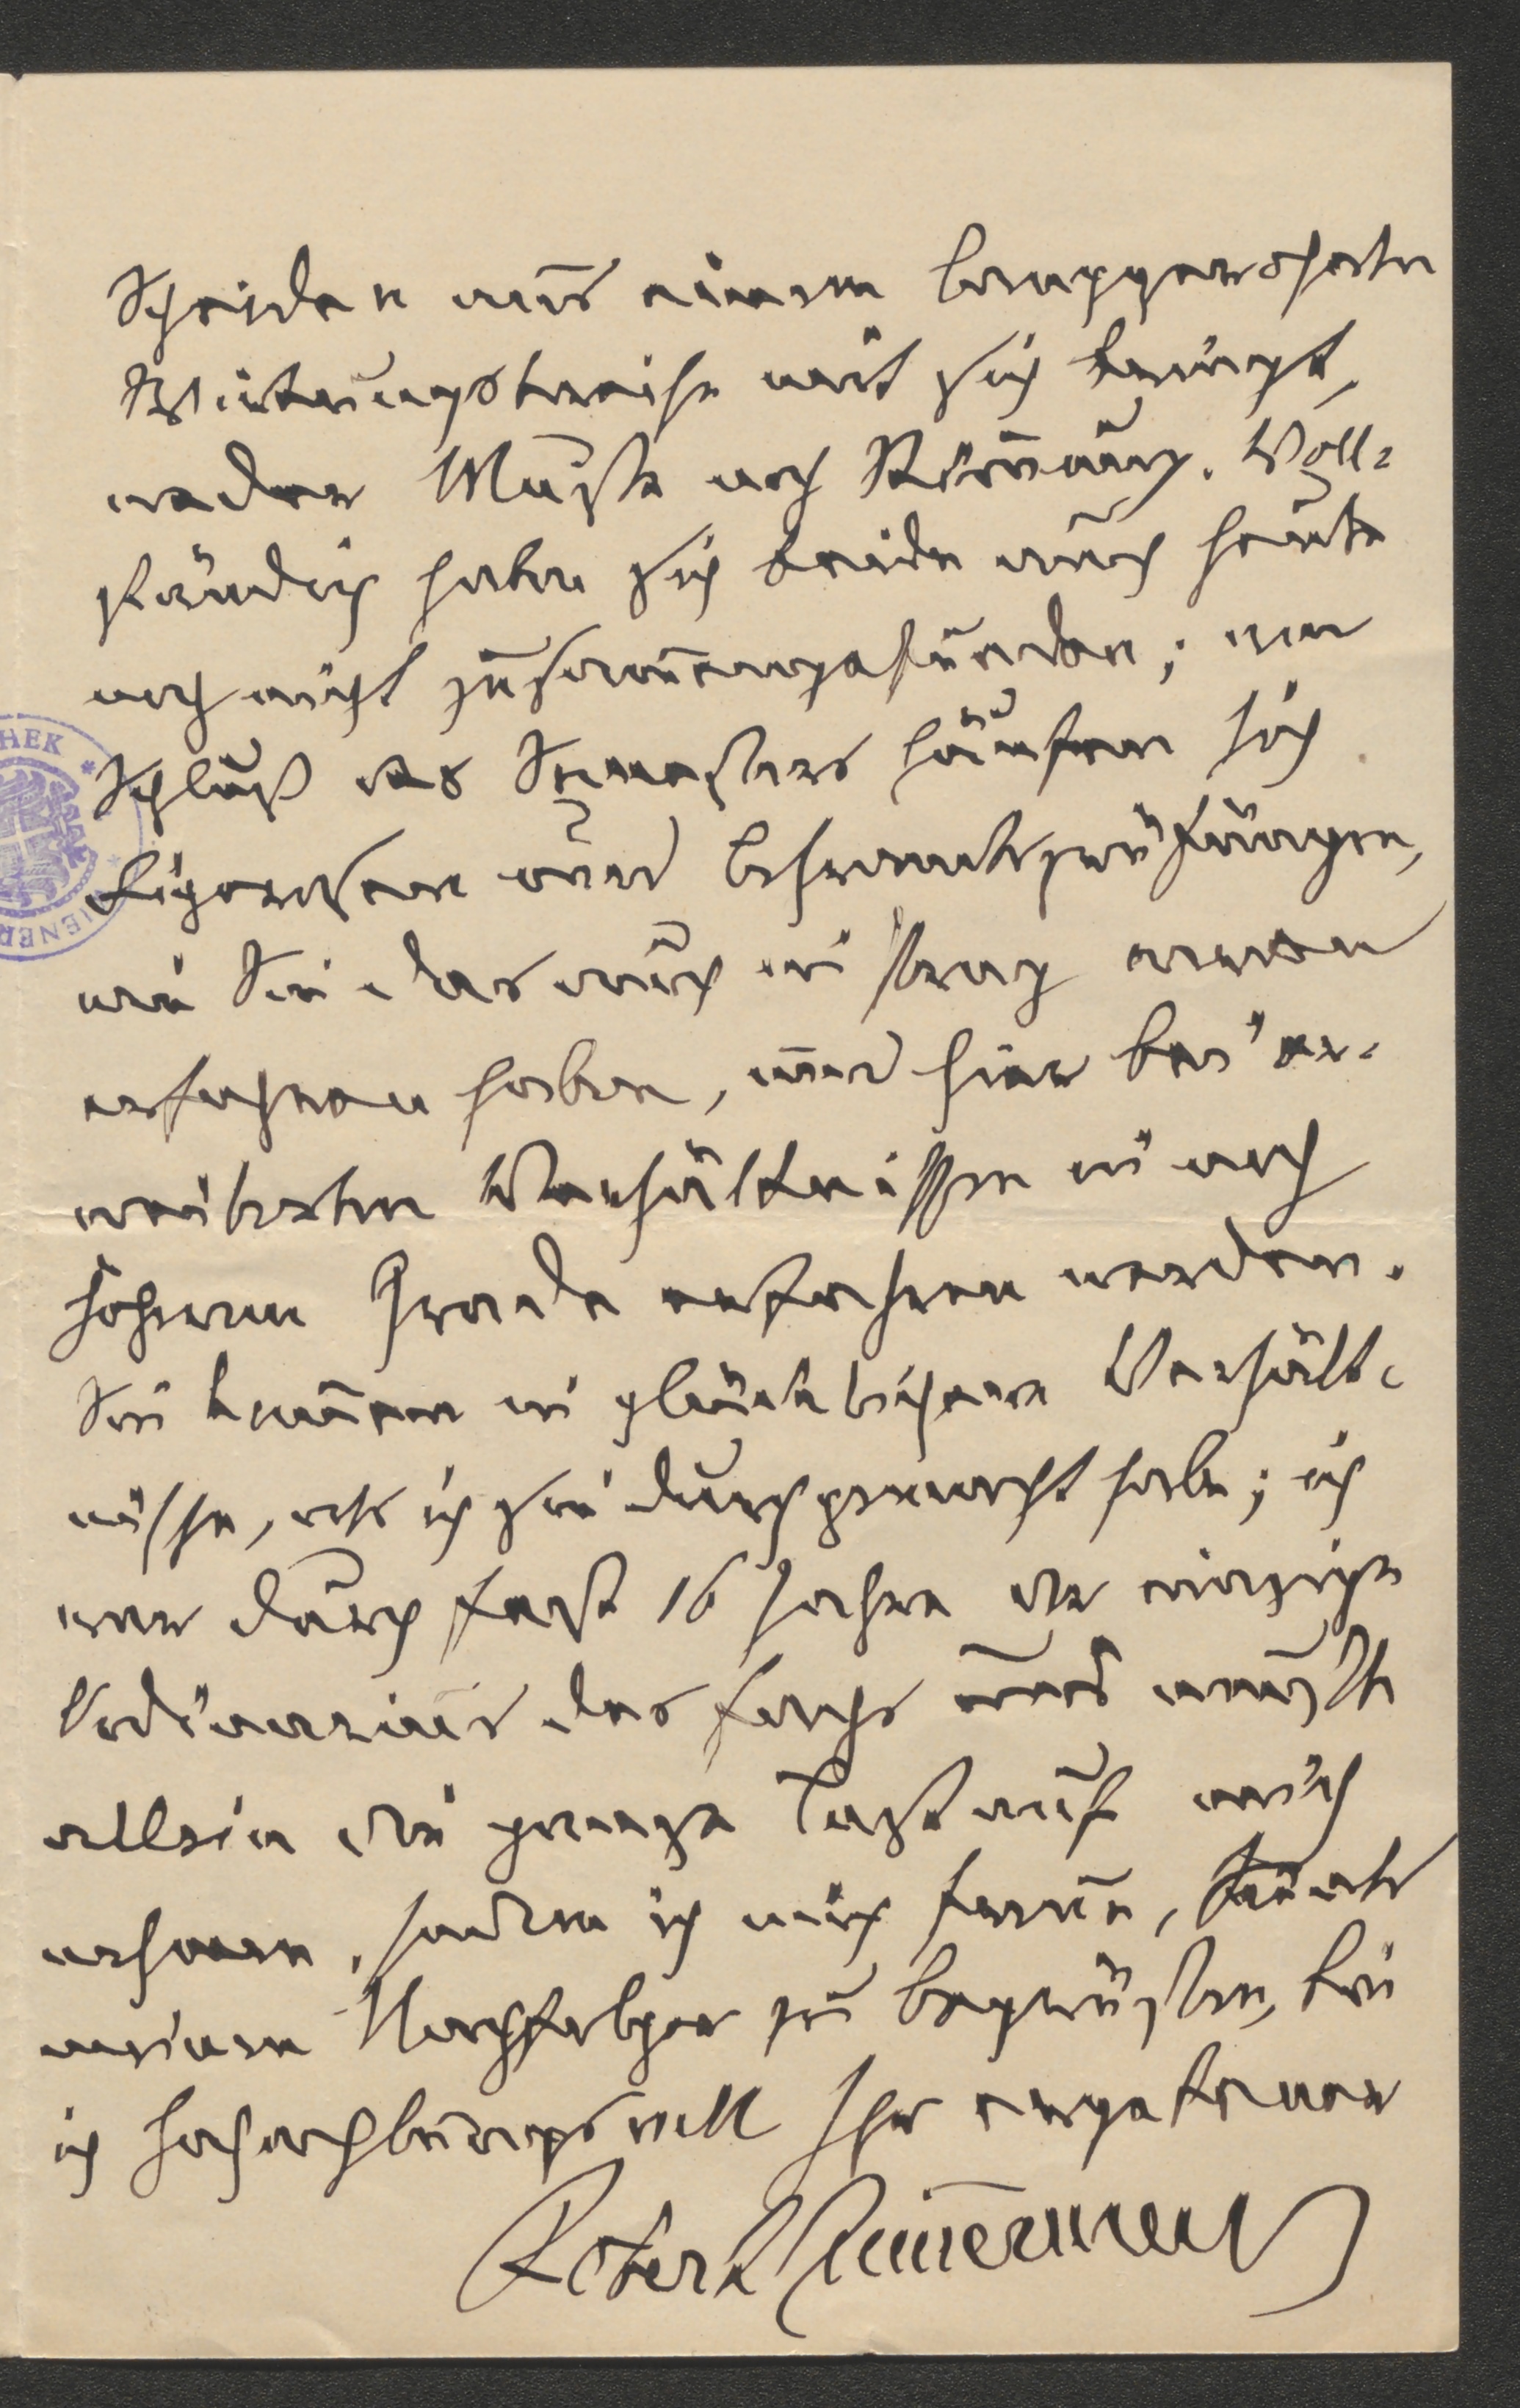 Scheiden aus einem langgewohnten
Wirkungskreise mit sich bringt,
weder Muße noch Stimmung. Voll-
ständig haben sich beide auch heute
noch nicht zusammengefunden; am
Schluß des Semesters häufen sich
Rigorosen und Lehramtsprüfungen,
wie Sie das auch in Prag
erfahren haben, und hier bei er-
weiterten Verhältnissen in noch
höherem Grade erfahren werden.
Sie kommen in glücklichere Verhält-
nisse, als ich sie durchgemacht habe; ich
war durch fast 16 Jahre der einzige
Ordinarius des Fachs und mußte
allein die ganze Last auf mich
nehmen. Indem ich mich freue,
meinen Nachfolger zu begrüßen, bin
ich hochachtungsvoll Ihr ergebener
Robert Zimmermann
THEK
WIENER